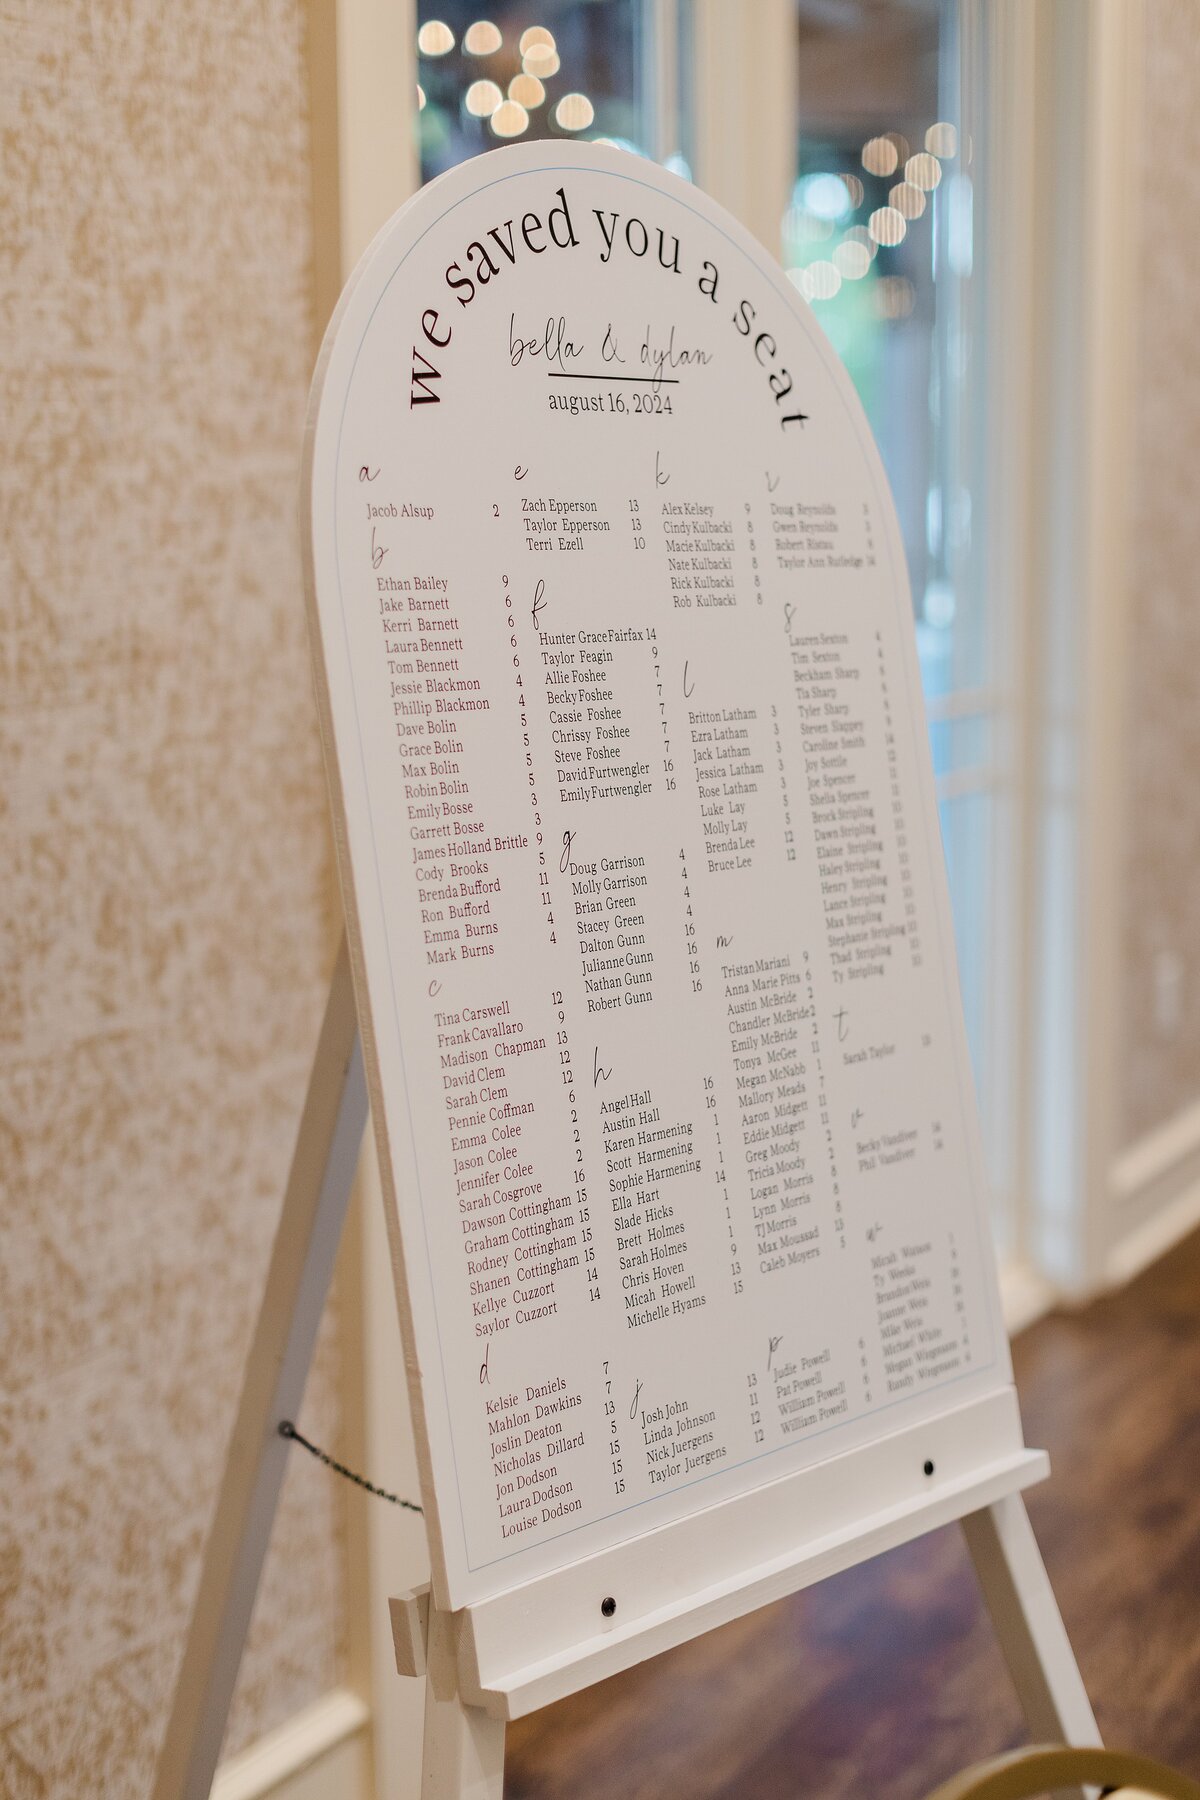 we saved you a seat
bella & dylan
august 16, 2024
a
Jacob Alsup 2
b
Ethan Bailey 9
Jake Barnett 6
Kerri Barnett 6
Laura Bennett 6
Tom Bennett 6
Jessie Blackmon 4
Phillip Blackmon 4
Dave Bolin 5
Grace Bolin 5
Max Bolin 5
Robin Bolin 5
Emily Bosse 3
Garrett Bosse 3
James Holland Brittle 9
Cody Brooks 5
Brenda Bufford 11
Ron Bufford 11
Emma Burns 4
Mark Burns 4
c
Tina Carswell 12
Frank Cavallaro 9
Madison Chapman 13
David Clem 12
Sarah Clem 12
Pennie Coffman 6
Emma Colee 2
Jason Colee 2
Jennifer Colee 2
Sarah Cosgrove 16
Dawson Cottingham 15
Graham Cottingham 15
Rodney Cottingham 15
Shanen Cottingham 15
Kellye Cuzzort 14
Saylor Cuzzort 14
d
Kelsie Daniels 7
Mahlon Dawkins 7
Joslin Deaton 13
Nicholas Dillard 5
Jon Dodson 15
Laura Dodson 15
Louise Dodson 15
e
Zach Epperson 13
Taylor Epperson 13
Terri Ezell 10
f
Hunter Grace Fairfax 14
Taylor Feagin 9
Allie Foshee 7
Becky Foshee 7
Cassie Foshee 7
Chrissy Foshee 7
Steve Foshee 7
David Furtwengler 16
Emily Furtwengler 16
g
Doug Garrison 4
Molly Garrison 4
Brian Green 4
Stacey Green 4
Dalton Gunn 16
Julianne Gunn 16
Nathan Gunn 16
Robert Gunn 16
h
Angel Hall 16
Austin Hall 16
Karen Harmening 1
Scott Harmening 1
Sophie Harmening 1
Ella Hart 14
Slade Hicks 1
Brett Holmes 1
Sarah Holmes 1
Chris Hoven 9
Micah Howell 13
Michelle Hyams 15
j
Josh John 13
Linda Johnson 11
Nick Juergens 12
Taylor Juergens 12
k
Alex Kelsey 9
Cindy Kulbacki 8
Macie Kulbacki 8
Nate Kulbacki 8
Rick Kulbacki 8
Rob Kulbacki 8
l
Britton Latham 3
Ezra Latham 3
Jack Latham 3
Jessica Latham 3
Rose Latham 3
Luke Lay 5
Molly Lay 5
Brenda Lee 12
Bruce Lee 12
m
Tristan Mariani 9
Anna Marie Pitts 6
Austin McBride 2
Chandler McBride 2
Emily McBride 2
Tonya McGee 11
Megan McNabb 1
Mallory Meads 7
Aaron Midgett 11
Eddie Midgett 11
Greg Moody 2
Tricia Moody 2
Logan Morris 8
Lynn Morris 8
TJ Morris 8
Max Moussad 13
Caleb Moyers 5
p
Judie Powell 6
Pat Powell 6
William Powell 6
William Powell 6
r
Doug Reynolds 3
Gwen Reynolds 3
Robert Ristau
Taylor Ann Rutledge 14
s
Lauren Sexton 4
Tim Sexton 4
Beckham Sharp
Tia Sharp
Tyler Sharp
Steven Slappey
Caroline Smith 14
Joy Sottile 12
Joe Spencer 11
Sheila Spencer 11
Brock Stripling 10
Dawn Stripling 10
Elaine Stripling 10
Haley Stripling 10
Henry Stripling 10
Lance Stripling 10
Max Stripling 10
Stephanie Stripling 10
Thad Stripling 10
Ty Stripling 10
t
Sarah Taylor 13
v
Becky Vandiver 14
Phil Vandiver 14
w
Micah Watson
Ty Weeks
Brandon Weis
Joanne Weis
Mike Weis
Michael White
Megan Wiegmann
Randy Wiegmann